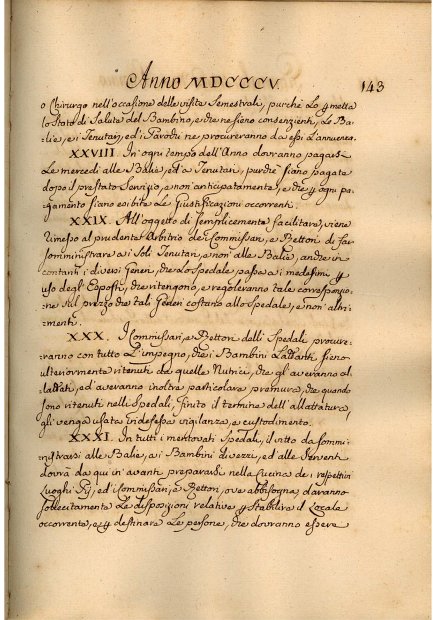 Anno MDCCCV. 143
o Chirurgo nell'occasione delle visite Semestrali, purchè Lo ꝑmetta
lo Stato di Salute del Bambino, e che ne sieno consenzienti Le Ba-
:lie, e i Tenutarj, ed i Parochi ne procureranno da essi L'annuenza.
XXVIII. In ogni tempo dell'Anno dovranno pagarsi
Le mercedi alle Balie, ed a' Tenutarj, purchè siano pagate
dopo il prestato Servizio, e non anticipatamente, e che ꝑ ogni pa-
:gamento siano esibite Le Giustificazioni occorrenti.
XXIX. All'oggetto di semplicemente facilitare, viene
rimesso al prudente Arbitrio de' Commissarj, e Rettori di far
somministrare a i Soli Tenutarj, e non alle Balie, anche in
contanti i diversi Generi, che lo Spedale passa a i medesimi ꝑ
uso degl' Esposti, che ritengono, e regoleranno tale correspensio-
:ne sul prezzo che tali Generi costano allo Spedale, e non altri-
:menti.
XXX. I Commissarj, e Rettori delli Spedali procure-
:ranno con tutto L'impegno, che i Bambini Lattanti sieno
ulteriormente ritenuti da quelle Nutrici, che gli averanno al-
:lattati, ed averanno inoltre particolare premura, che quando
sono ritenuti nelli Spedali, finito il termine dell'allattatura,
gli venga usata indefessa vigilanza, e custodimento.
XXXI. In tutti i mentovati Spedali, il vitto da sommi-
:nistrarsi alle Balie, a i Bambini divezzi, ed alle Serventi
dovrà da qui in avanti prepararsi nella Cucina de' respettivi
Luoghi Pij, ed i Commissarj, e Rettori, ove abbisogna, daranno
sollecitamente Le disposizioni relative ꝑ stabilire il Locale
occorrente, e ꝑ destinare Le persone, che dovranno essere